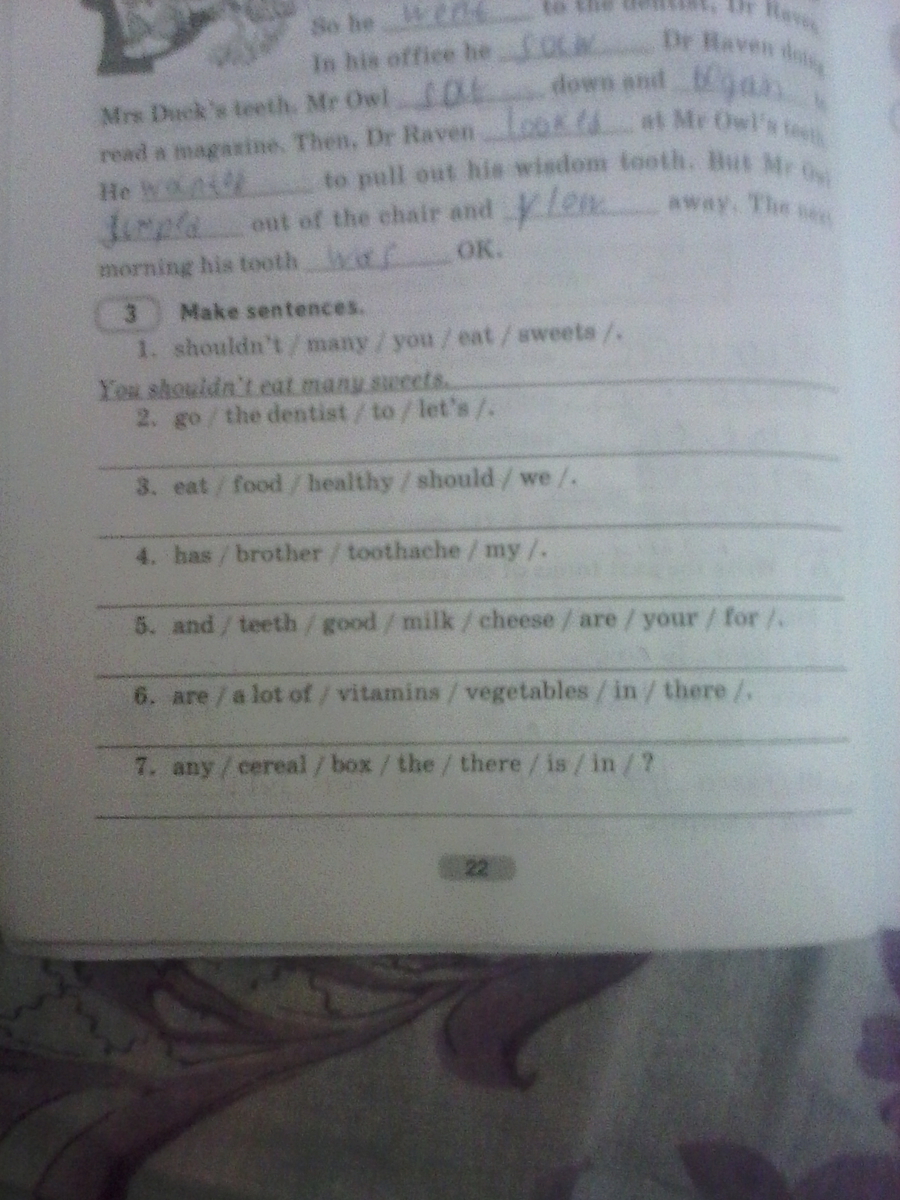 So he went to the dentist, Dr Raven.
In his office he saw Dr Raven doing
Mrs Duck's teeth. Mr Owl sat down and began
read a magazine. Then, Dr Raven looked at Mr Owl's teeth.
He wanted to pull out his wisdom tooth. But Mr Owl
out of the chair and away. The next
morning his tooth was OK.
3 Make sentences.
1. shouldn't / many / you / eat / sweets /.
You shouldn't eat many sweets.
2. go / the dentist / to / let's /.
3. eat / food / healthy / should / we /.
4. has / brother / toothache / my /.
5. and / teeth / good / milk / cheese / are / your / for /.
6. are / a lot of / vitamins / vegetables / in / there /.
7. any / cereal / box / the / there / is / in / ?
22